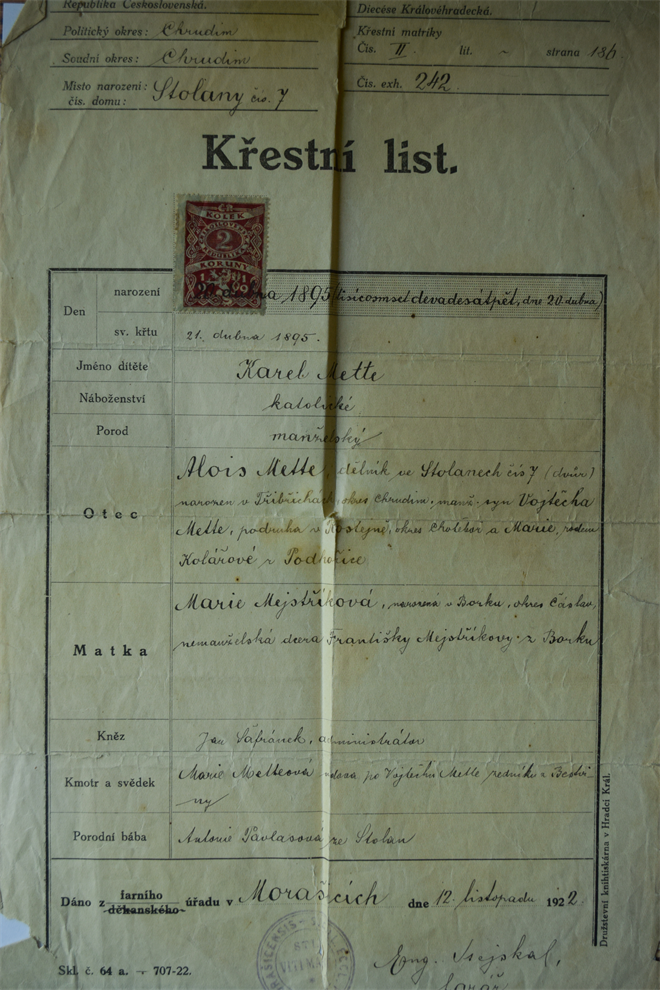 Republika Československá.
Diecése Královéhradecká.
Politický okres: Chrudim
Křestní matriky
Čís. II lit. ~ strana
Soudní okres: Chrudim
Místo narození:
čís. domu: Stolany čís. 7
Čís. exh. 242.
Křestní list.
ČR
KOLEK
2
KORUNY
Den
narození
dubna 1895 (tisícosmsetdevadesátpět, dne 20. dubna)
sv. křtu
21. dubna 1895.
Jméno dítěte
Karel Mette
Náboženství
katolické
Porod
manželský
Otec
Alois Mette, dělník ve Stolanech čís 7 (dvůr)
narozen v Tříbřichách, okres Chrudim, manž. syn Vojtěcha
Mette, podruha v Kostejně, okres Chotěboř a Marie, rodem
Kolářové z Podhořice
Matka
Marie Mejstříková, narozená v Borku, okres Čáslav,
nemanželská dcera Františky Mejstříkovy z Borku
Kněz
Jan Šafránek, administrátor
Kmotr a svědek
Marie Metteová vdova po Vojtěchu Mette
Porodní bába
Antonie Pavlasová ze Stolan
Dáno z farního děkanského úřadu v Morašicích dne 12. listopadu 1922.
Skl. č. 64 a. — 707-22.
Družstevní knihtiskárna v Hradci Král.